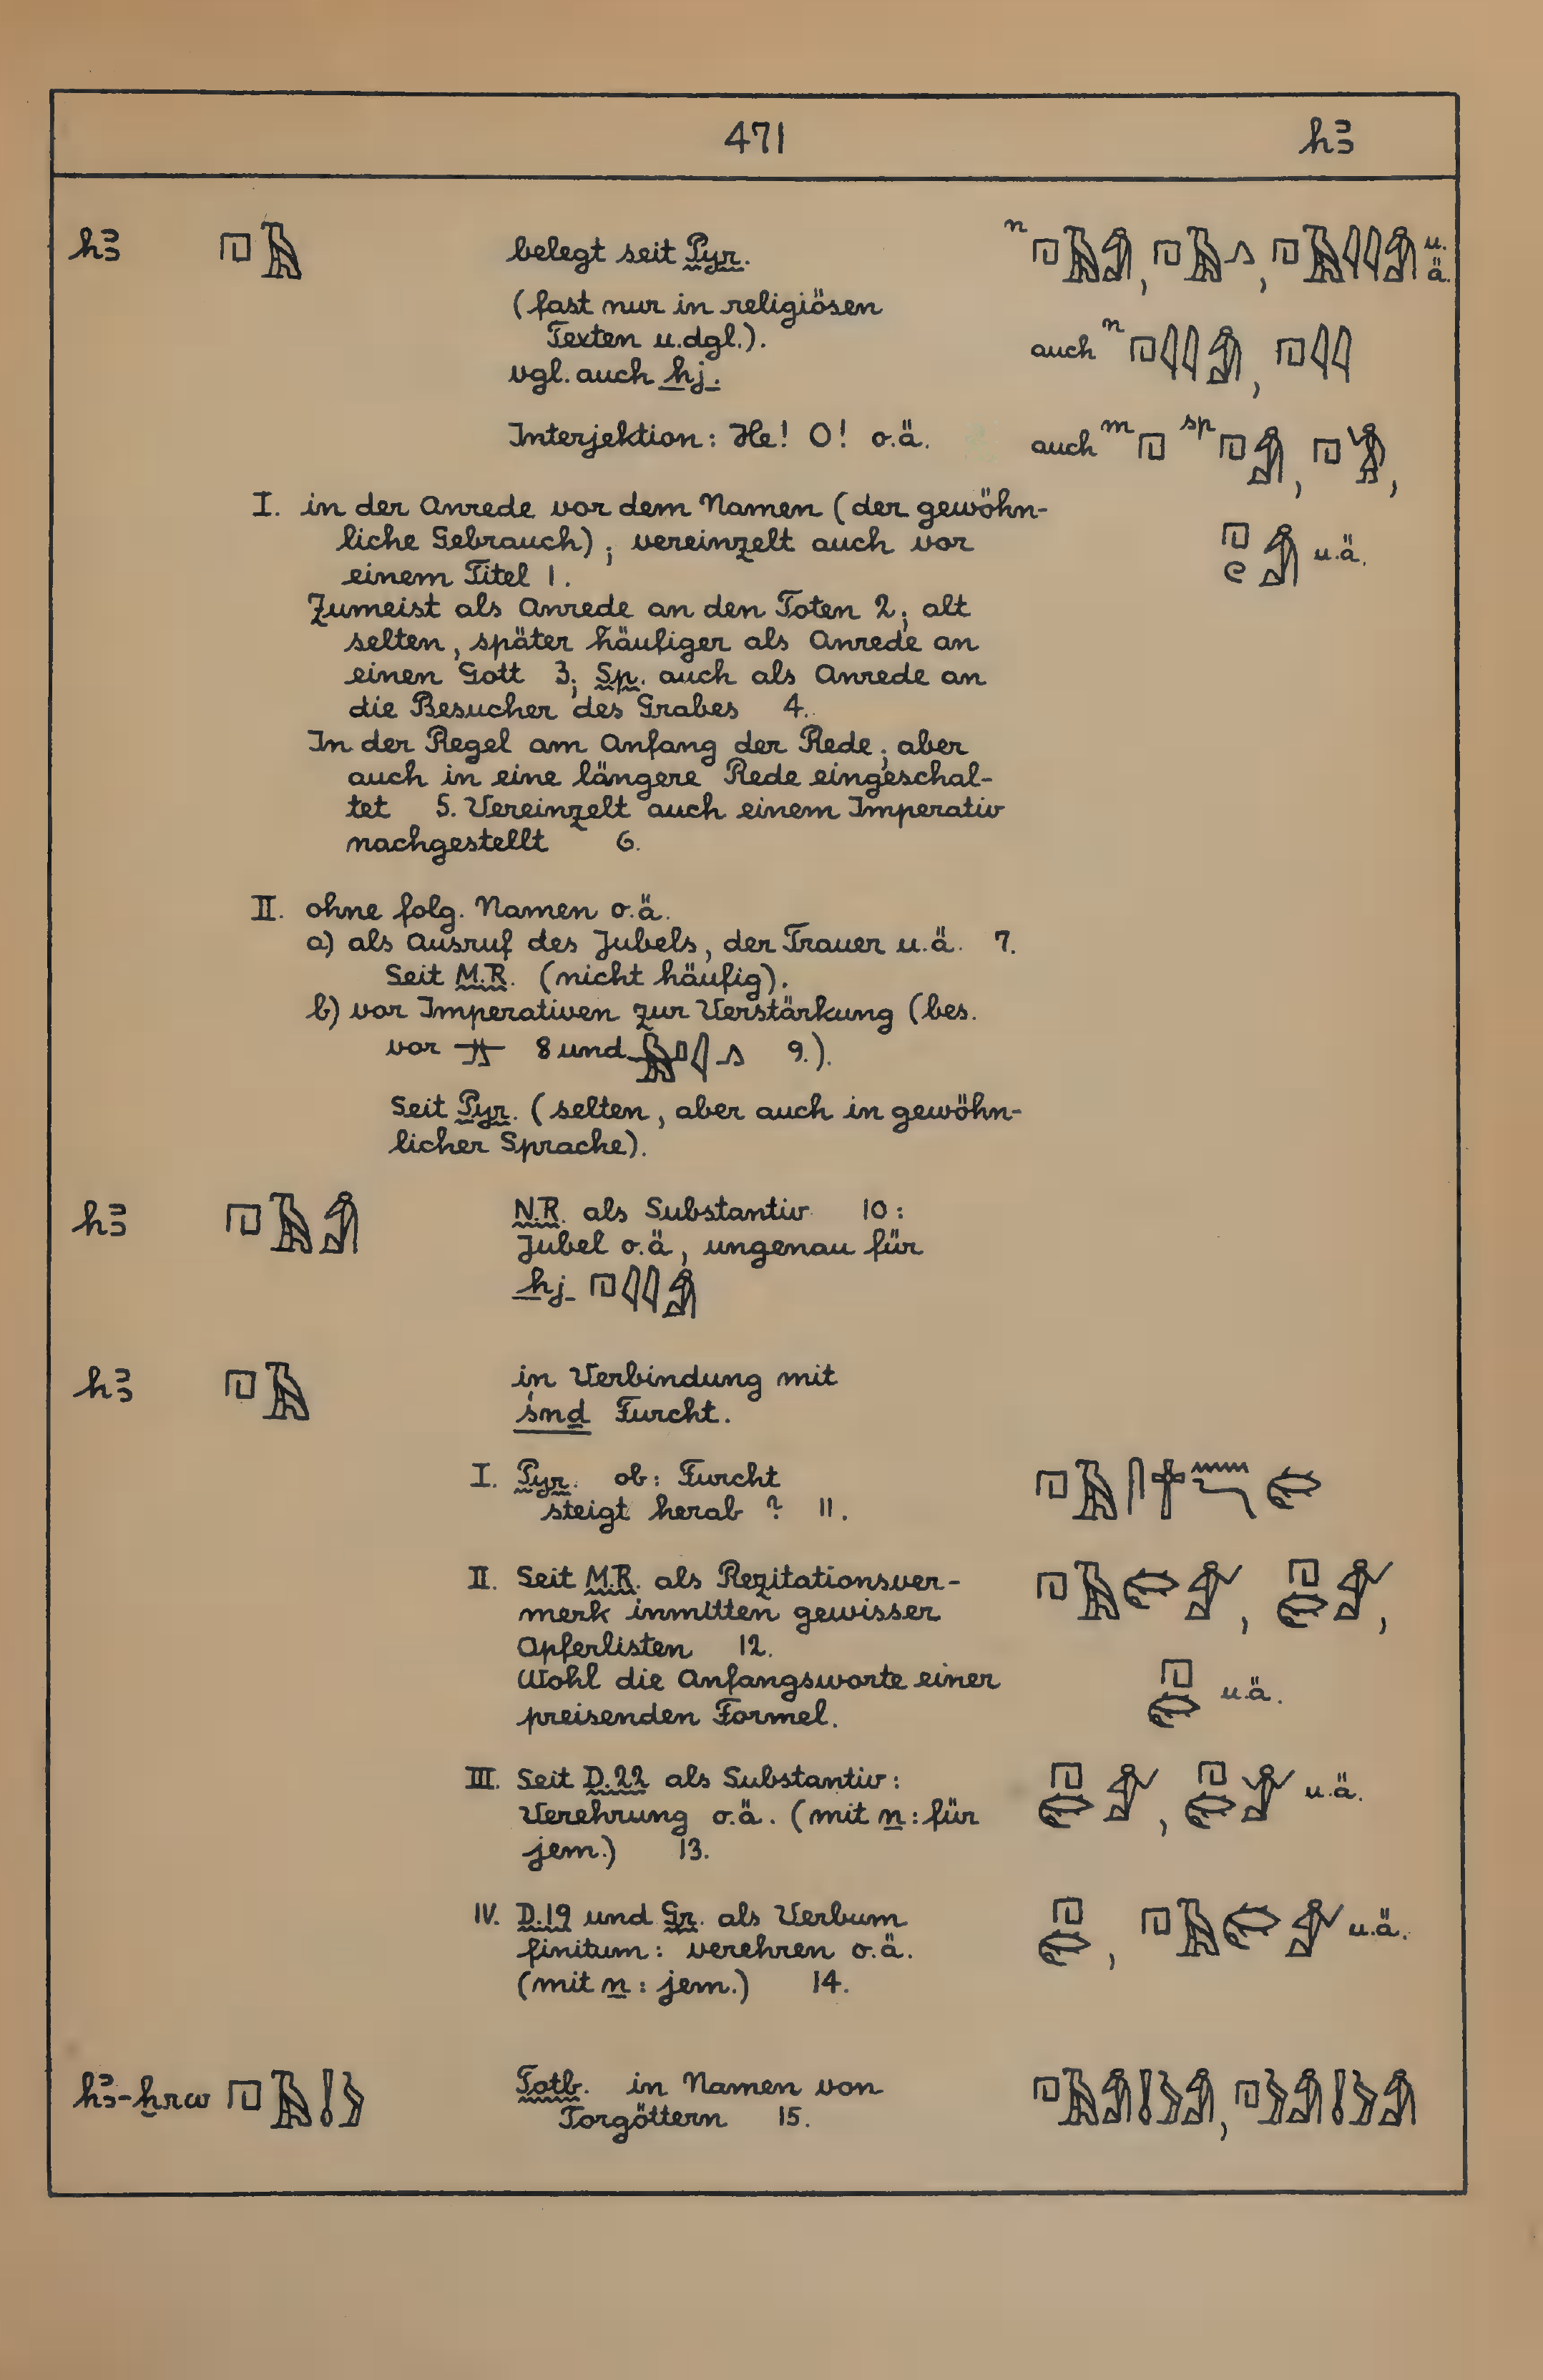 471 hꜣ
hꜣ 𓉔𓄿 belegt seit Pyr. n 𓉔𓄿𓀁, 𓉔𓄿𓂻, 𓉔𓄿𓇋𓇋𓀁 u. ä.
(fast nur in religiösen
Texten u.dgl.).
vgl. auch hj. auch n 𓉔𓇋𓇋𓀁, 𓉔𓇋𓇋
Interjektion: He! O! o.ä. auch m 𓉔 sp 𓉔𓀁, 𓉔𓀠,
𓉔𓏲𓀁 u.ä.
I. in der Anrede vor dem Namen (der gewöhn-
liche Gebrauch); vereinzelt auch vor
einem Titel 1.
Zumeist als Anrede an den Toten 2; alt
selten, später häufiger als Anrede an
einen Gott 3; Sp. auch als Anrede an
die Besucher des Grabes 4.
In der Regel am Anfang der Rede; aber
auch in eine längere Rede eingeschal-
tet 5. Vereinzelt auch einem Imperativ
nachgestellt 6.
II. ohne folg. Namen o.ä.
a) als Ausruf des Jubels, der Trauer u.ä. 7.
Seit M.R. (nicht häufig).
b) vor Imperativen zur Verstärkung (bes.
vor 8 und 9.).
Seit Pyr. (selten, aber auch in gewöhn-
licher Sprache).
hꜣ 𓉔𓄿𓀁 N.R. als Substantiv 10:
Jubel o.ä, ungenau für
hj 𓉔𓇋𓇋𓀁
hꜣ 𓉔𓄿 in Verbindung mit
śnḏ Furcht.
I. Pyr. ob: Furcht 𓉔𓄿𓋴𓋹𓈖𓆓𓅾
steigt herab ? 11.
II. Seit M.R. als Rezitationsver-
merk inmitten gewisser
Opferlisten 12.
Wohl die Anfangsworte einer
preisenden Formel. u.ä.
III. Seit D.22 als Substantiv:
Verehrung o.ä. (mit n: für u.ä.
jem.) 13.
IV. D.19 und Gr. als Verbum u.ä.
finitum: verehren o.ä.
(mit n: jem.) 14.
hꜣ-ẖrw 𓉔𓄿𓊤𓅱 Totb. in Namen von 𓉔𓄿𓀁𓊤𓅱𓀁, 𓉔𓅱𓀁𓊤𓅱𓀁
Torgöttern 15.